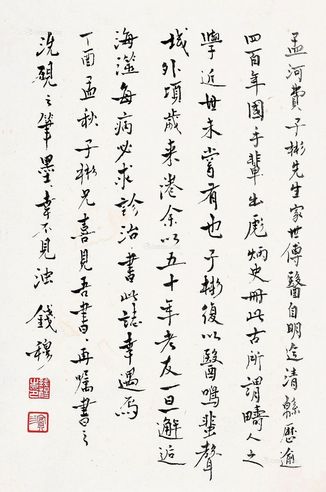 孟河費子彬先生家世傳醫自明迄清緜歷逾
四百年國手輩出彪炳史冊此古所謂疇人之
學近世未嘗有也子彬復以醫鳴蜚聲
域外頃歲來港余以五十年老友一旦邂逅
海澨每病必求診治書此誌幸遇焉
丁酉孟秋子彬兄喜見吾書再囑書之
洗硯之筆墨幸不見濁 錢穆